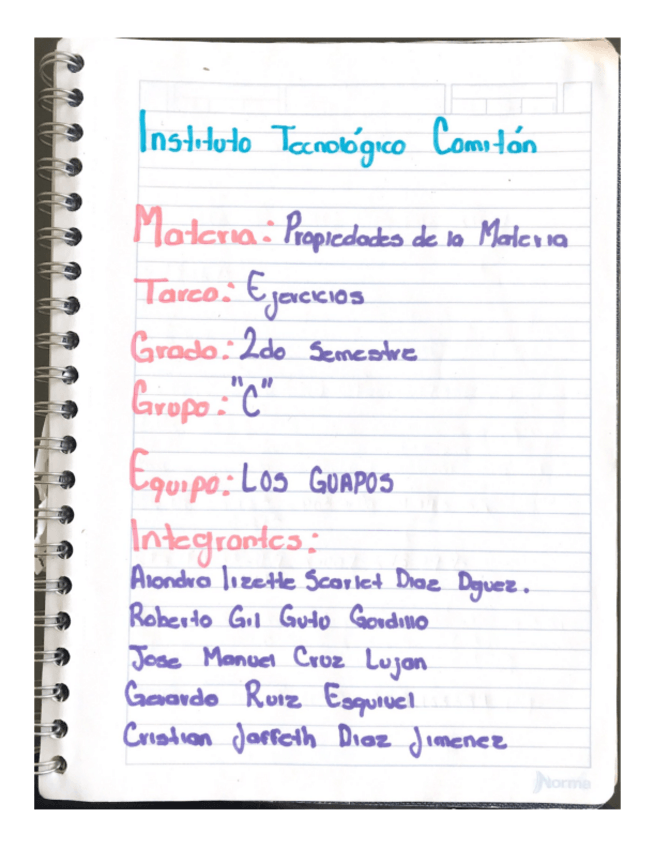 Instituto Tecnológico Comitán
Materia: Propiedades de la Materia
Tarea: Ejercicios
Grado: 2do Semestre
Grupo: "C"
Equipo: LOS GUAPOS
Integrantes:
Alondra lizette Scarlet Diaz Dguez.
Roberto Gil Guto Gordillo
Jose Manuel Cruz Lujan
Gerardo Ruiz Esquivel
Cristian Jaffeth Diaz Jimenez
Norma